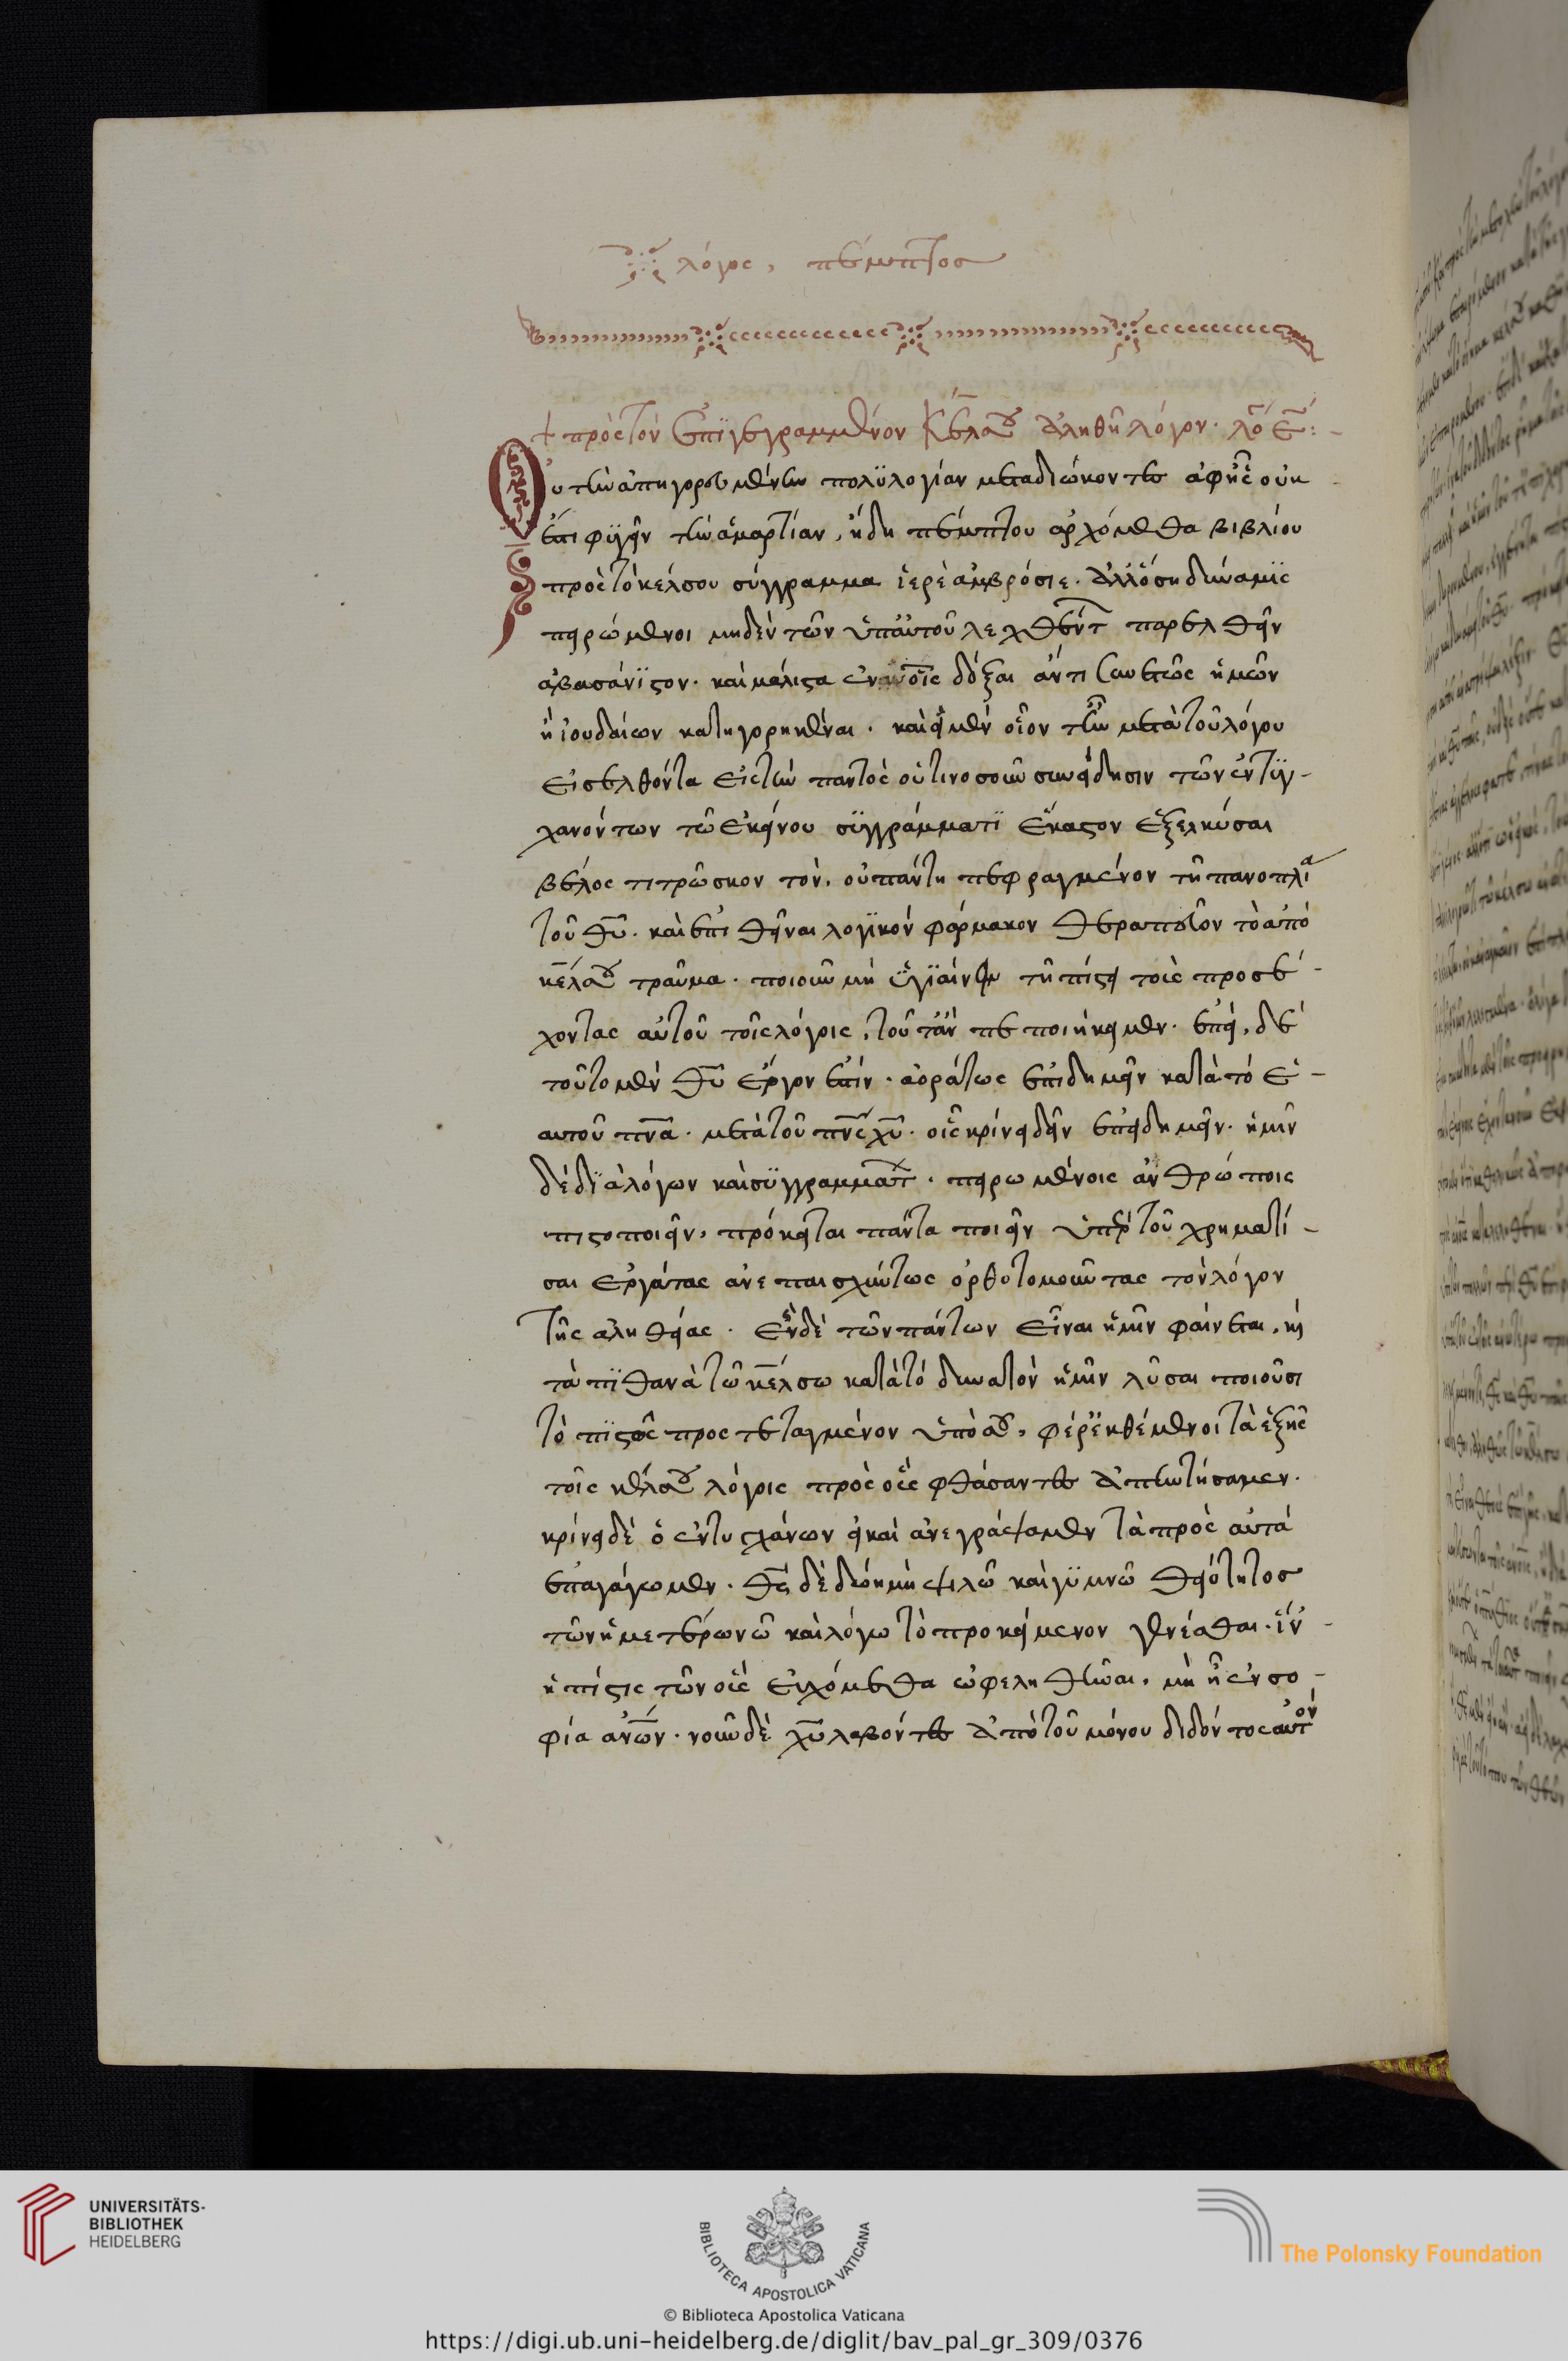 λόγος, πέμπτος
+ πρὸς τὸν ἐπιγεγραμμένον Κέλσου ἀληθῆ λόγον. λό ε:-
Οὐ τὴν ἀπηγορευμένην πολϋλογίαν μεταδιώκοντες ἀφ' ἧς οὐκ
ἔστι φϋγεῖν τὴν ἁμαρτίαν, ἤδη πέμπτου ἀρχόμεθα βιβλίου
πρὸς τὸ κέλσου σύγγραμμα ἱερὲ ἀμβρόσιε. ἀλλ' ὅση δύναμϊς
πειρώμενοι μηδὲν τῶν ὑπ' αὐτοῦ λεχθέντ παρελθεῖν
ἀβασάνϊστον. καὶ μάλιστα ἐν οἷς δόξαι ἄν τι σαφῶς ἡμῶν
ἢ ἰουδαίων κατηγορηκέναι. καὶ εἰ μὲν οἷόν τ' ἦν μετὰ τοῦ λόγου
εἰσελθόντα εἰς τὴν παντὸς οὑτινοσοῦν συνείδησιν τῶν ἐντϋγ-
χανόντων τῶ ἐκείνου σϋγγράμματϊ ἕκαστον ἐξελκύσαι
βέλος τιτρῶσκον τὸν, οὐ πάντη πεφραγμένον τῆ πανοπλία
τοῦ θυ. καὶ ἐπιθεῖναι λογϊκὸν φάρμακον θεραπεῦον τὸ ἀπὸ
κέλσου τραῦμα. ποιοῦν μὴ ὑγϊαίνειν τῆ πίστει τοὺς προσέ-
χοντας αὐτοῦ τοῖς λόγοις, τοῦτ' ἂν πεποιήκειμεν. ἐπεὶ, δὲ
τοῦτο μὲν θυ ἔργον ἐστίν. ἀοράτως ἐπιδημεῖν κατὰ τὸ ἑ-
αυτοῦ πνα. μετὰ τοῦ πνς χυ. οἷς κρίνει δεῖν ἐπιδημεῖν. ἡμῖν
δὲ δϊὰ λόγων καὶ σϋγγραμματ. πειρωμένοις ἀνθρώποις
πιστοποιεῖν, πρόκειται πάντα ποιεῖν ὑπὲρ τοῦ χρηματί-
σαι ἐργάτας ἀνεπαισχύντως ὀρθοτομοῦντας τὸν λόγον
τῆς ἀληθείας. ἓν δὲ τῶν πάντων εἶναι ἡμῖν φαίνεται, κὶ
τὰ πϊθανὰ τῶ κέλσω κατὰ τὸ δυνατὸν ἡμῖν λῦσαι ποιοῦσι
τὸ πϊστῶς προστεταγμένον ὑπὸ σοῦ, φέρ' ἐκθέμενοι τὰ ἑξῆς
τοῖς κέλσου λόγοις πρὸς οἷς φθάσαντες ἀπηντήσαμεν.
κρίνει δὲ ὁ ἐντυγχάνων εἰ καὶ ἀνεγράψαμεν τὰ πρὸς αὐτά
ἐπαγάγωμεν. θς δὲ δώη μὴ ψιλῶ καὶ γϋμνῶ θειότητος
τῶν ἡμετέρων νῶ καὶ λόγω τὸ προκείμενον γενέσθαι. ἵν'
ἡ πίστις τῶν οἷς εὐχόμεθα ὠφεληθῆναι, μὴ ἦ ἐν σο-
φία ἀνων. νοῦν δὲ χυ λαβόντες ἀπὸ τοῦ μόνου διδόντος αὐτὸν
UNIVERSITÄTS-
BIBLIOTHEK
HEIDELBERG
BIBLIOTECA APOSTOLICA VATICANA
© Biblioteca Apostolica Vaticana
The Polonsky Foundation
https://digi.ub.uni-heidelberg.de/diglit/bav_pal_gr_309/0376